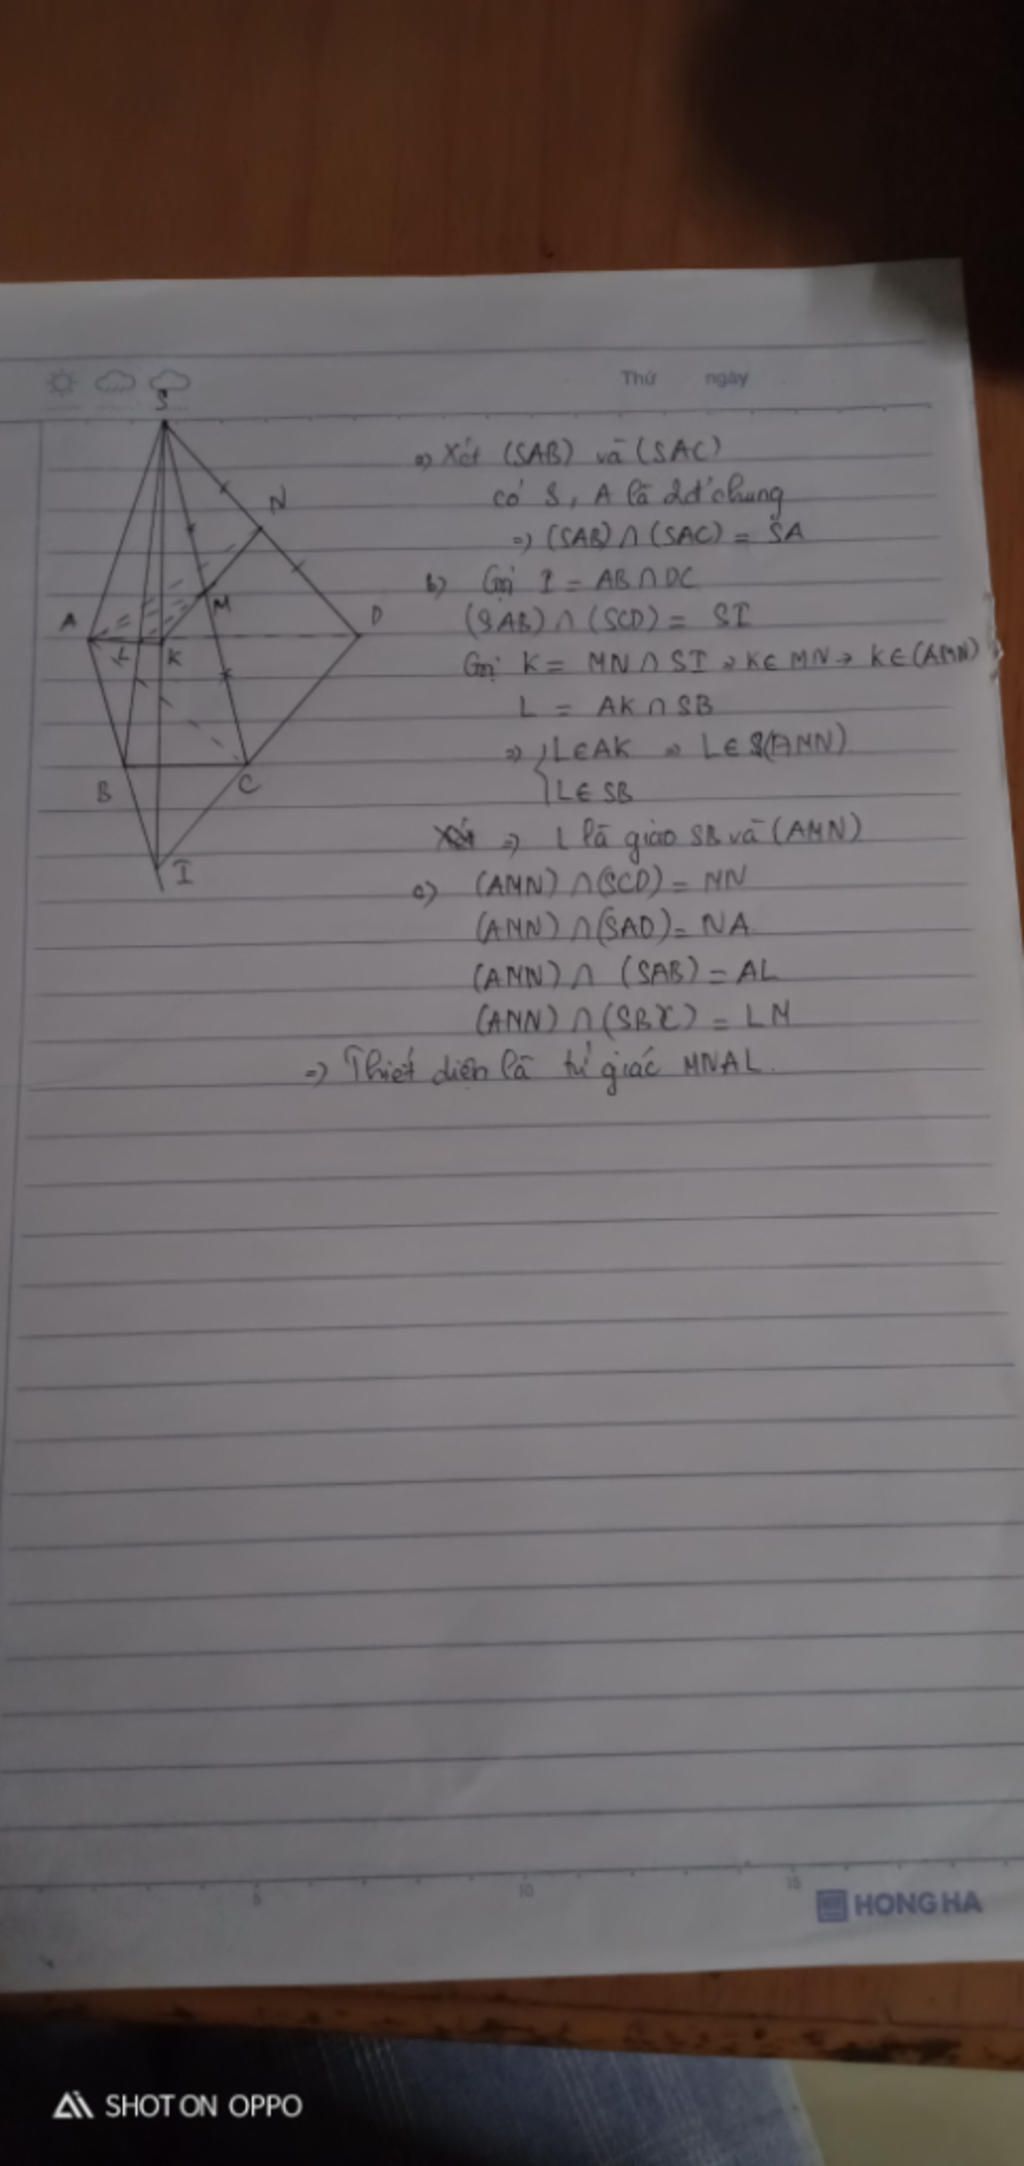 Thứ ngày
S
N
A
M
D
L
K
B
C
I
a) Xét (SAB) và (SAC)
có S, A là 2đ' chung
=> (SAB) ∩ (SAC) = SA
b) Gọi I = AB ∩ DC
(SAB) ∩ (SCD) = SI
Gọi K = MN ∩ SI → K∈MN → K∈(AMN)
L = AK ∩ SB
=> { L∈AK => L∈(AMN)
L∈SB
=> L là giao SB và (AMN)
c) (AMN) ∩ (SCD) = MN
(AMN) ∩ (SAD) = NA
(AMN) ∩ (SAB) = AL
(AMN) ∩ (SBC) = LM
=> Thiết diện là tứ giác MNAL.
5 10 15
HONG HA
SHOT ON OPPO